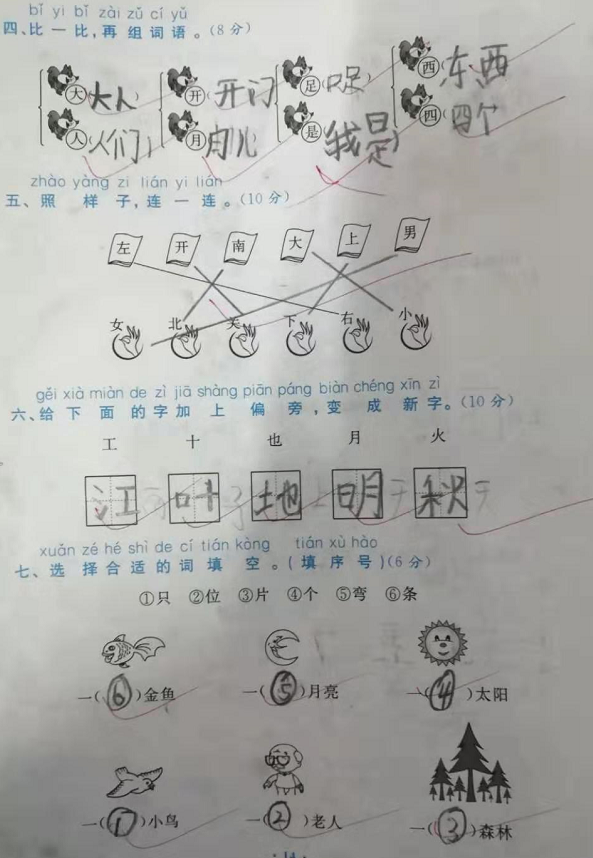 bǐ yi bǐ zài zǔ cí yǔ
四、比一比,再组词语。(8分)
大(大人) 开(开门) 足(口足) 西(东西
人(人们) 月(月儿) 是(我是) 四(四个
zhào yàng zi lián yi lián
五、照样子,连一连。(10分)
左 开 南 大 上 男
女 北 关 下 右 小
gěi xià miàn de zì jiā shàng piān páng biàn chéng xīn zì
六、给下面的字加上偏旁,变成新字。(10分)
工 十 也 月 火
江 叶 地 明 秋
xuǎn zé hé shì de cí tián kòng tián xù hào
七、选择合适的词填空。(填序号)(6分)
①只 ②位 ③片 ④个 ⑤弯 ⑥条
一(⑥)金鱼 一(⑤)月亮 一(④)太阳
一(①)小鸟 一(②)老人 一(③)森林